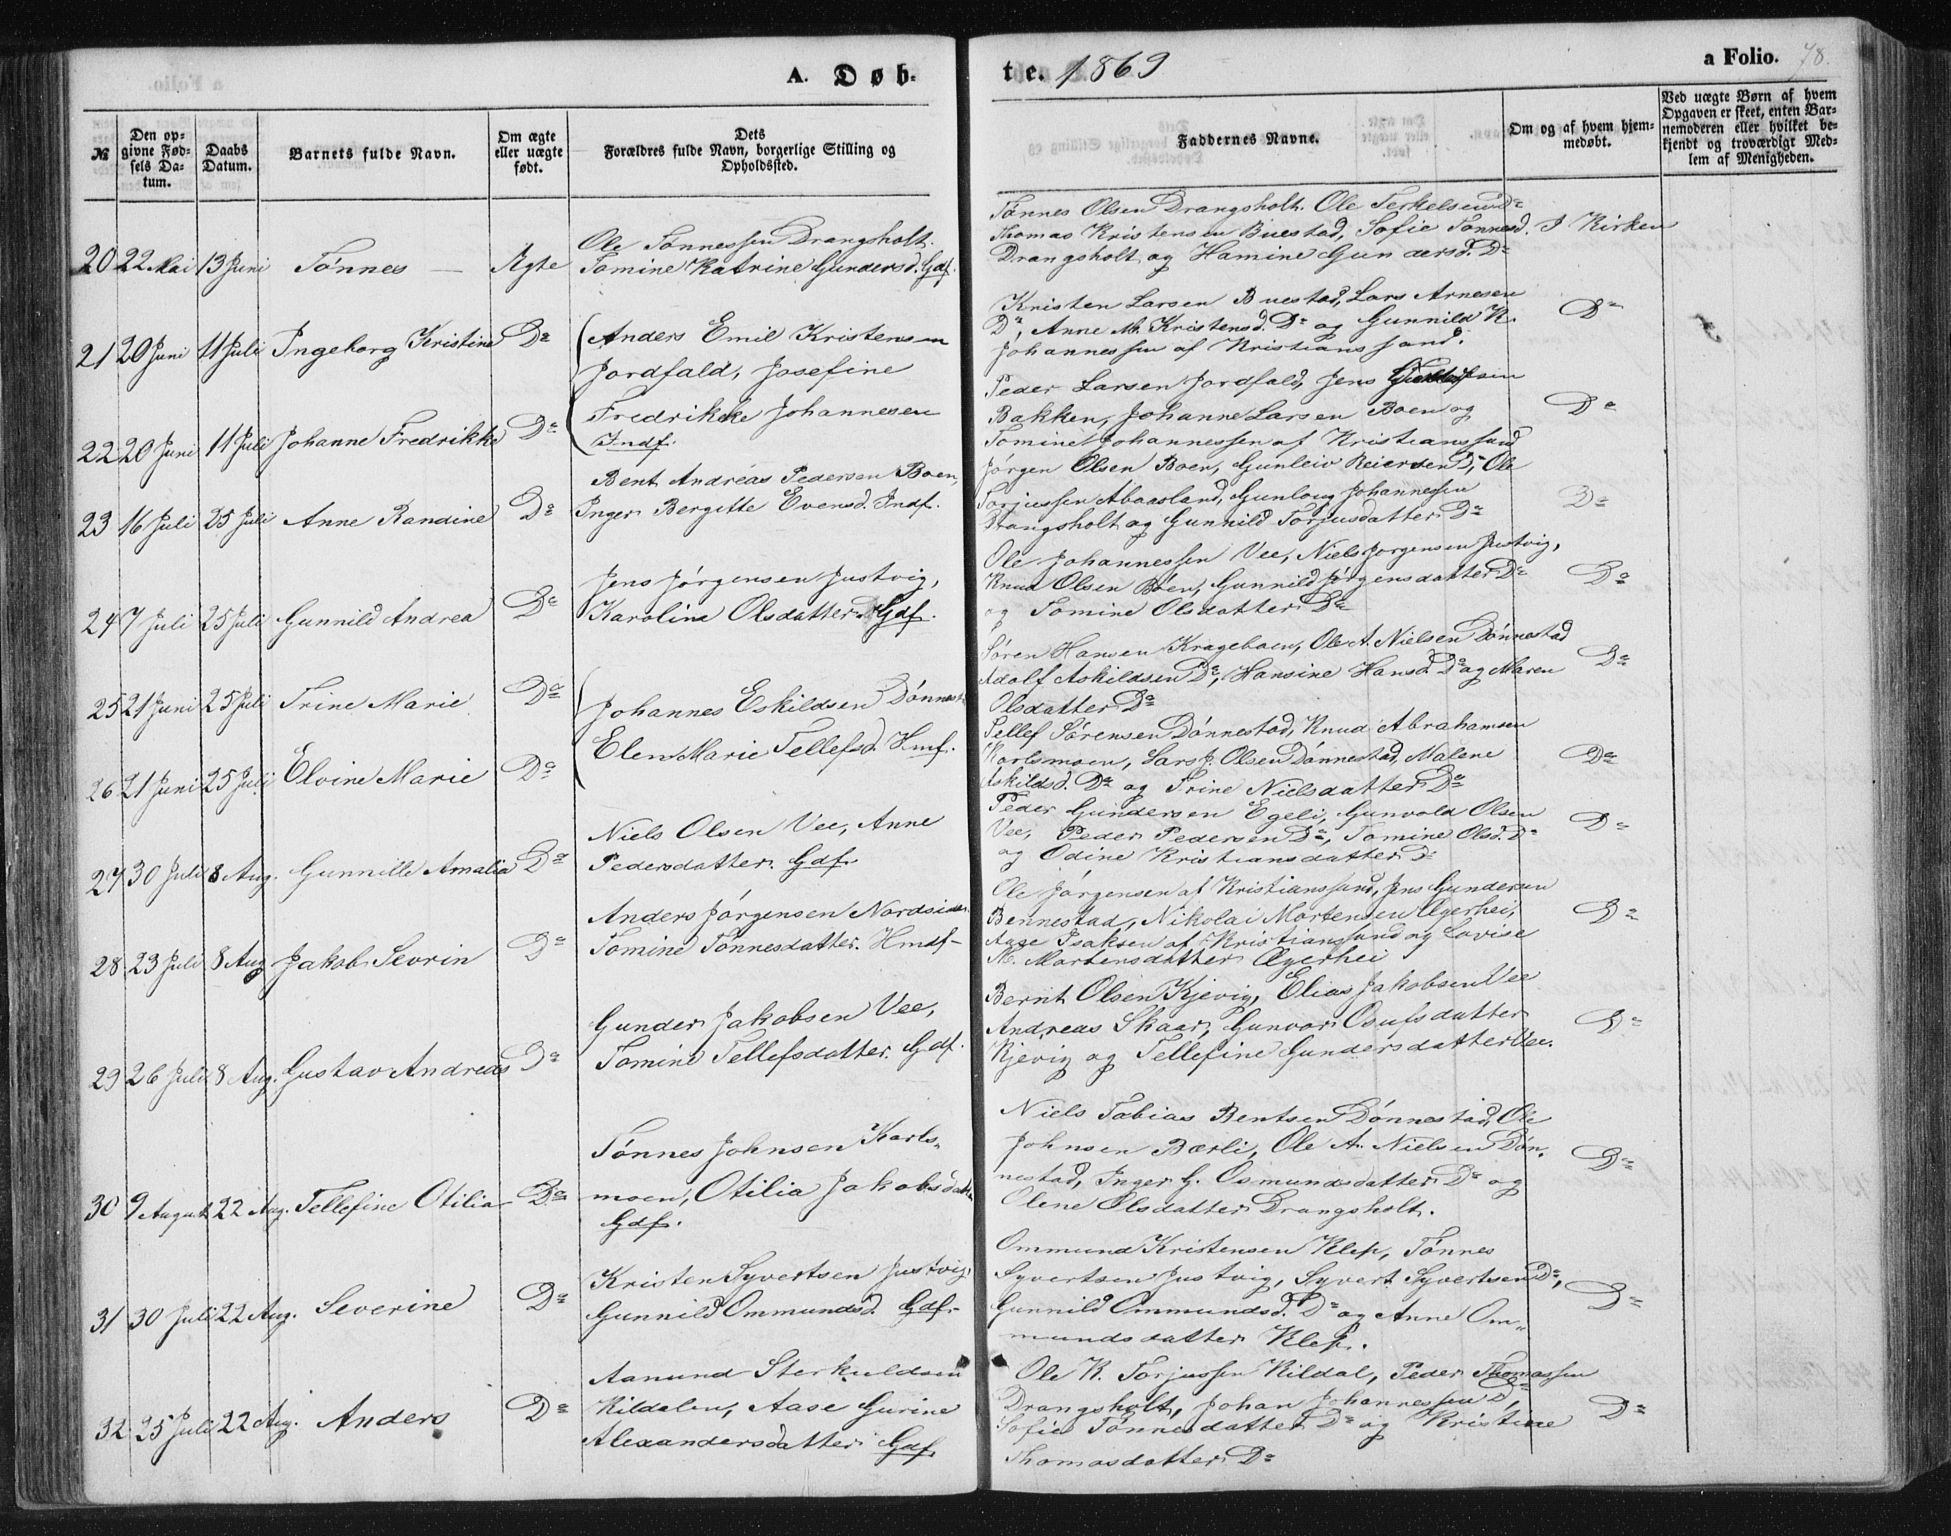 A. Døb-
te. 1869
a Folio. 78.
№
Den opgivne Fødsels Datum.
Daabs Datum.
Barnets fulde Navn.
Om ægte eller uægte født.
Dets Forældres fulde Navn, borgerlige Stilling og Opholdssted.
Faddernes Navne.
Om og af hvem hjemmedøbt.
Ved uægte Børn af hvem Opgaven er skeet, enten Barnemoderen eller hvilket bekjendt og troværdigt Medlem af Menigheden.
20 22 Mai 13 Juni Tønnes Ægte
Ole Tønnessen Drangsholt.
Tomine Katrine Gundersd. Gdf.
Tønnes Olsen Drangsholt. Ole Terkelsen Do
Thomas Kristensen Buestad, Sofie Tønnesd.
Drangsholt og Hamine Gundersd. Do
I Kirken
21 20 Juni 11 Juli Ingeborg Kristine Do
Anders Emil Kristensen
Jordfald, Josefine
Kristen Larsen Buestad, Lars Arnesen
Do, Anne M. Kristensd. Do og Gunnild K.
Johannessen af Kristianssand.
Do
22 20 Juni 11 Juli Johanne Fredrikke Do
Fredrikke Johannesen
Indf.
Peder Larsen Jordfald, Jens
Bakken, Johanne Larsen Boen og
Tomine Johannessen af Kristianssand
Do
23 16 Juli 25 Juli Anne Randine Do
Bent Andreas Pedersen Boen,
Inger Bergitte Evensd. Indf.
Jörgen Olsen Boen, Gunleiv Reiersen Do, Ole
Torjussen Abaasland, Gunloug Johannessen
Drangsholt og Gunnild Torjusdatter Do
Do
24 7 Juli 25 Juli Gunnild Andrea Do
Jens Jörgensen Justvig,
Karoline Olsdatter Gdf.
Ole Johannessen Vee, Niels Jorgensen Justvig,
Knud Olsen Böen, Gunnild Jörgensdatter Do
og Tomine Olsdatter Do
Do
25 21 Juni 25 Juli Trine Marie Do
Johannes Eskildsen Dönnest.
Sören Hansen Krageboen, Ole A. Nielsen Dönnestad
Adolf Askildsen Do, Hansine Hansd. Do og Maren
Olsdatter Do
Do
26 21 Juni 25 Juli Elvine Marie Do
Elen Marie Tellefsd. Hmf.
Tellef Sörensen Dönnestad, Knud Abrahamsen
Karlsmoen, Lars J. Olsen Dönnestad, Malene
Askildsd. Do og Trine Nielsdatter Do
Do
27 30 Juli 8 Aug. Gunnille Amalia Do
Niels Olsen Vee, Anne
Pedersdatter. Gdf.
Peder Gundersen Egeli, Gunvold Olsen
Vee, Peder Pedersen Do, Tomine Olsd. Do
og Odine Kristiansdatter Do
Do
28 23 Juli 8 Aug Jakob Sevrin Do
Anders Jörgensen Nordsiden
Tomine Tönnesdatter. Hmdf.
Ole Jörgensen af Kristianssand, Jens Gundersen
Bennestad, Nikolai Mortensen Ægerhei,
Aase Isaksen af Kristianssand og Lovise
M. Mortensdatter Ægerhei
Do
29 26 Juli 8 Aug. Gustav Andreas Do
Gunder Jakobsen Vee,
Tomine Tellefsdatter. Gdf.
Bernt Olsen Kjevig, Elias Jakobsen Vee
Andreas Skaar, Gunvor Osufsdatter
Kjevig og Tellefine Gundersdatter Vee.
Do
30 9 August 22 Aug. Tellefine Otilia Do
Tönnes Johnsen Karls-
moen, Otilia Jakobsdatter
Gdf.
Niels Tobias Bentsen Dönnestad, Ole
Johnsen Bærli, Ole A. Nielsen Dön-
nestad, Inger G. Osmundsdatter Do og
Olene Olsdatter Drangsholt.
Do
31 30 Juli 22 Aug. Severine Do
Kristen Syvertsen Justvig
Gunnild Ommundsd. Gdf.
Ommund Kristensen Klep, Tönnes
Syvertsen Justvig, Syvert Syvertsen Do,
Gunnild Ommundsd. Do og Anne Om-
mundsdatter Klep.
Do
32 25 Juli 22 Aug. Anders Do
Aanund Sterkuldsen
Kildalen, Aase Gurine
Alexandersdatter Gdf.
Ole K. Torjussen Kildal, Peder Thomassen
Drangsholt, Johan Johannessen Do,
Sofie Tönnesdatter Do og Kristine
Thomasdatter Do
Do